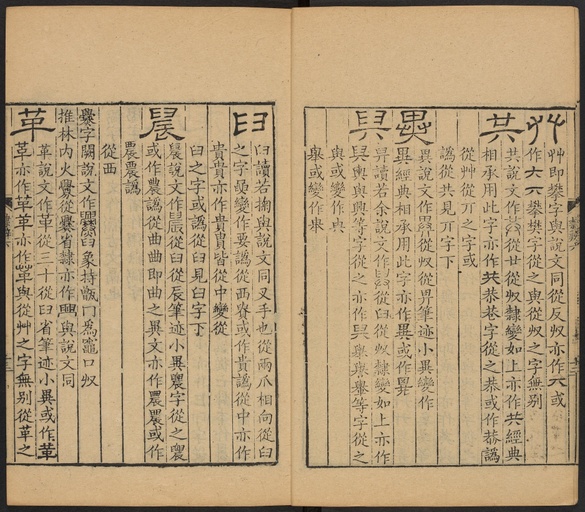 艸即攀字與説文同從反𠬞亦作大或
作大六攀樊字從之與從𠬞之字無别
共
共説文作 從廿從𠬞隸變如上亦作共經典
相承用此字亦作共恭巷字從之恭或作恭譌
從艸從丌之字或
譌從共見丌字下
異
異説文作 從𠬞從畀筆迹小異變作
異經典相承用此字亦作異或作異
舁讀若余説文作 從臼從𠬞隸變如上亦作
與輿與興等字從之亦作 舉 等字從之
與或變作與
舉或變作
臼
臼讀若掬與説文同叉手也從兩爪相向從臼
之字 變作要譌從西 或作貴譌從中亦作
貴貴亦作貴貴皆從中變從
臼之字或譌從臼見臼字下
晨
晨説文作 從臼從辰筆迹小異農字從之農
或作農譌從曲曲即曲之異文亦作農農或作
農農譌
從西
爨字闕説文作爨臼象持甑冂爲竈口𠬞
推林内火釁從爨省隸亦作 與説文同
革
革説文作革從三十從臼省筆迹小異或作革
革亦作革革亦作 與從艸之字無别從革之